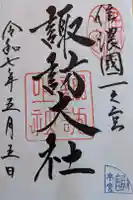 信濃國一之宮
諏訪大社
令和七年五月五日